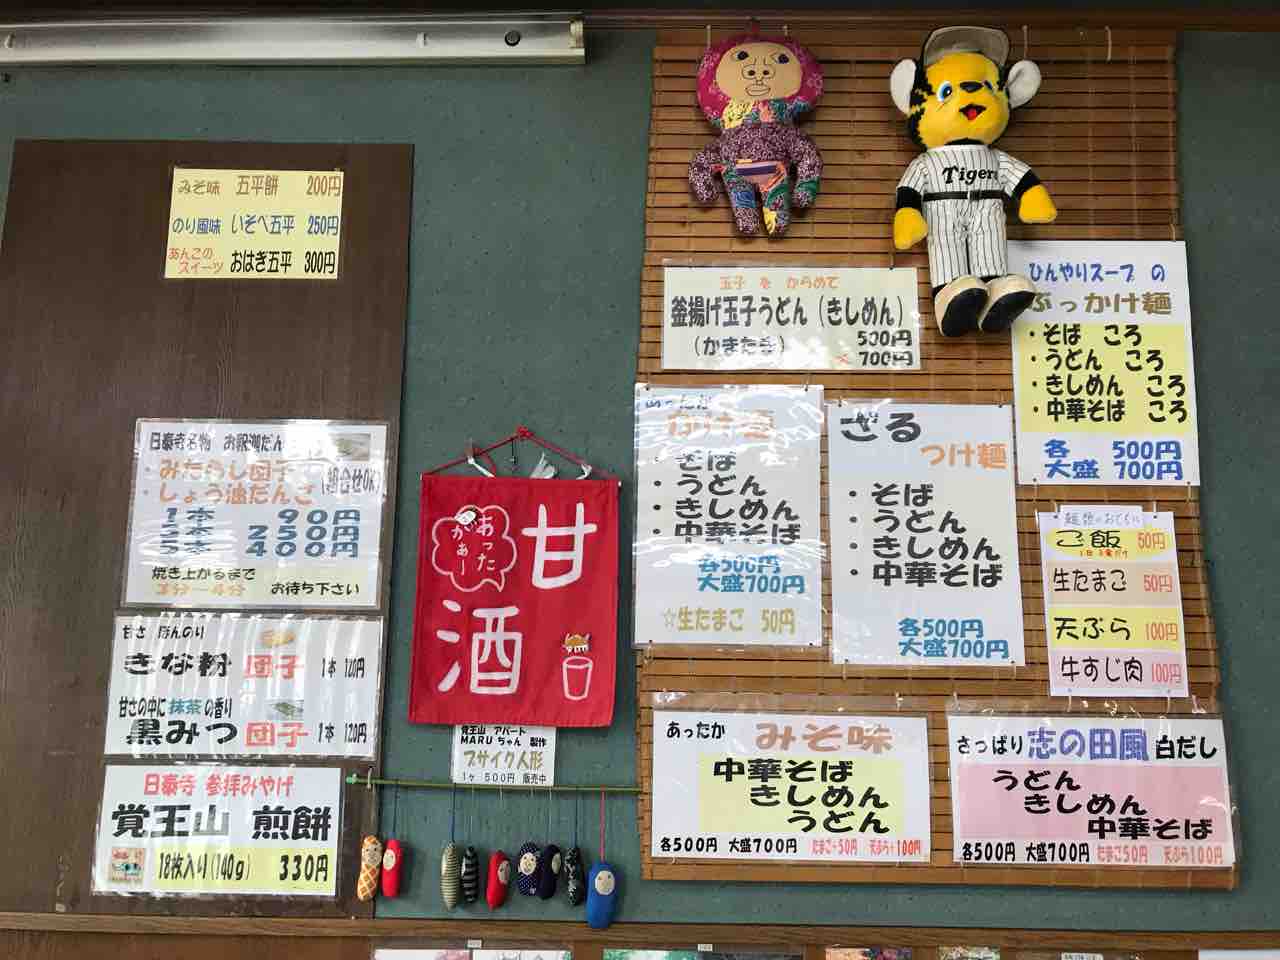 みそ味 五平餅 200円
のり風味 いそべ五平 250円
あんこのスイーツ おはぎ五平 300円
日泰寺名物 お釈迦だん
・みたらし団子
・しょう油だんご
(組合せOK)
1本 90円
本 250円
本 400円
焼き上がるまで
3分〜4分 お待ち下さい
甘さ ほんのり
きな粉 団子 1本 120円
甘さの中に抹茶の香り
黒みつ 団子 1本 120円
日泰寺 参拝みやげ
覚王山 煎餅
18枚入り(140g) 330円
甘酒
あったかぁー
覚王山 アパート
MARUちゃん 製作
ブサイク人形
1ヶ 500円 販売中
Tigers
玉子 を からめて
釜揚げ玉子うどん(きしめん)
(かまたま) 500円
大 700円
ひんやりスープ の
ぶっかけ麺
・そば ころ
・うどん ころ
・きしめん ころ
・中華そば ころ
各 500円
大盛 700円
あったか
・そば
・うどん
・きしめん
・中華そば
各500円
大盛700円
☆生たまご 50円
ざる
つけ麺
・そば
・うどん
・きしめん
・中華そば
各500円
大盛700円
麺類のおともに
ご飯 50円
生たまご 50円
天ぷら 100円
牛すじ肉 100円
あったか みそ味
中華そば
きしめん
うどん
各500円 大盛700円 たまご+50円 天ぷら+100円
さっぱり 志の田風 白だし
うどん
きしめん
中華そば
各500円 大盛700円 たまご50円 天ぷら100円